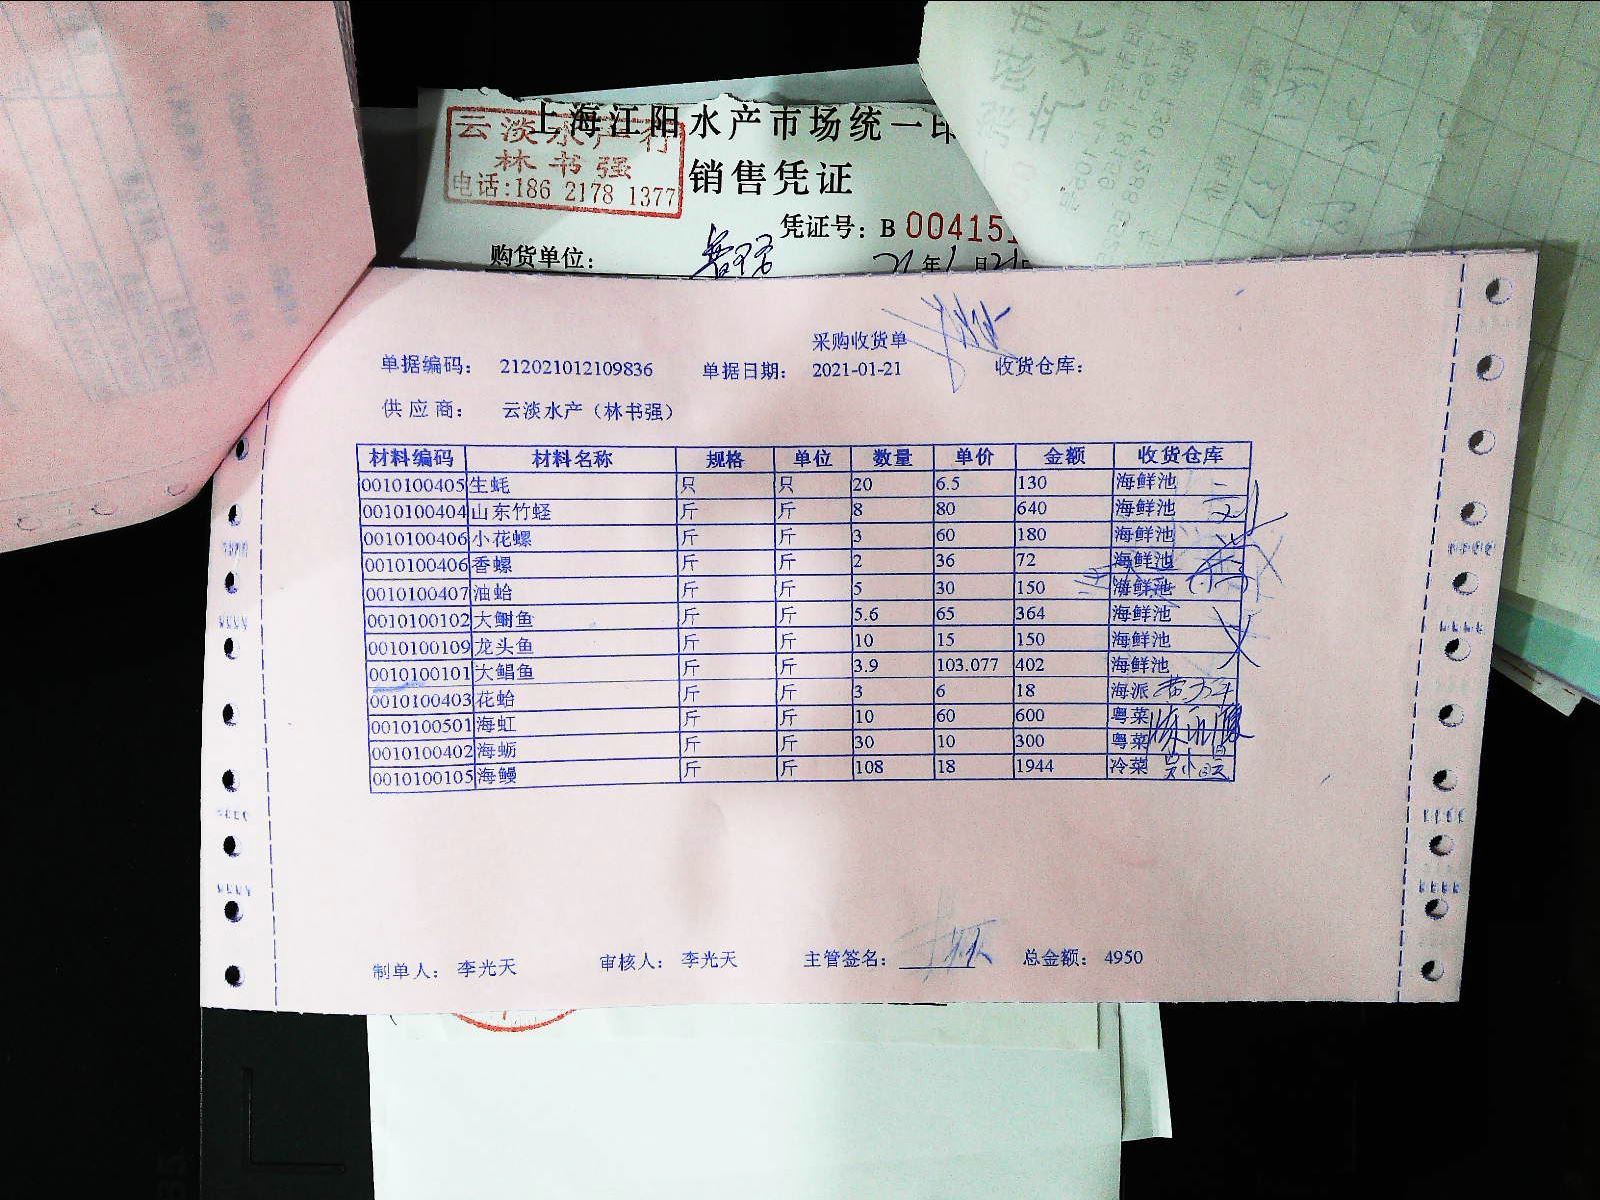 上海江阳水产市场统一印
云淡水产行
林书强
电话:186 2178 1377
销售凭证
凭证号: B 004151
购货单位:
21年1月21日
采购收货单
单据编码: 212021012109836 单据日期: 2021-01-21 收货仓库:
供应商: 云淡水产（林书强）
材料编码 材料名称 规格 单位 数量 单价 金额 收货仓库
0010100405 生蚝 只 只 20 6.5 130 海鲜池
0010100404 山东竹蛏 斤 斤 8 80 640 海鲜池
0010100406 小花螺 斤 斤 3 60 180 海鲜池
0010100406 香螺 斤 斤 2 36 72 海鲜池
0010100407 油蛤 斤 斤 5 30 150 海鲜池
0010100102 大鲥鱼 斤 斤 5.6 65 364 海鲜池
0010100109 龙头鱼 斤 斤 10 15 150 海鲜池
0010100101 大鲳鱼 斤 斤 3.9 103.077 402 海鲜池
0010100403 花蛤 斤 斤 3 6 18 海派
0010100501 海虹 斤 斤 10 60 600 粤菜
0010100402 海蛎 斤 斤 30 10 300 粤菜
0010100105 海鳗 斤 斤 108 18 1944 冷菜
制单人: 李光天 审核人: 李光天 主管签名: 总金额: 4950